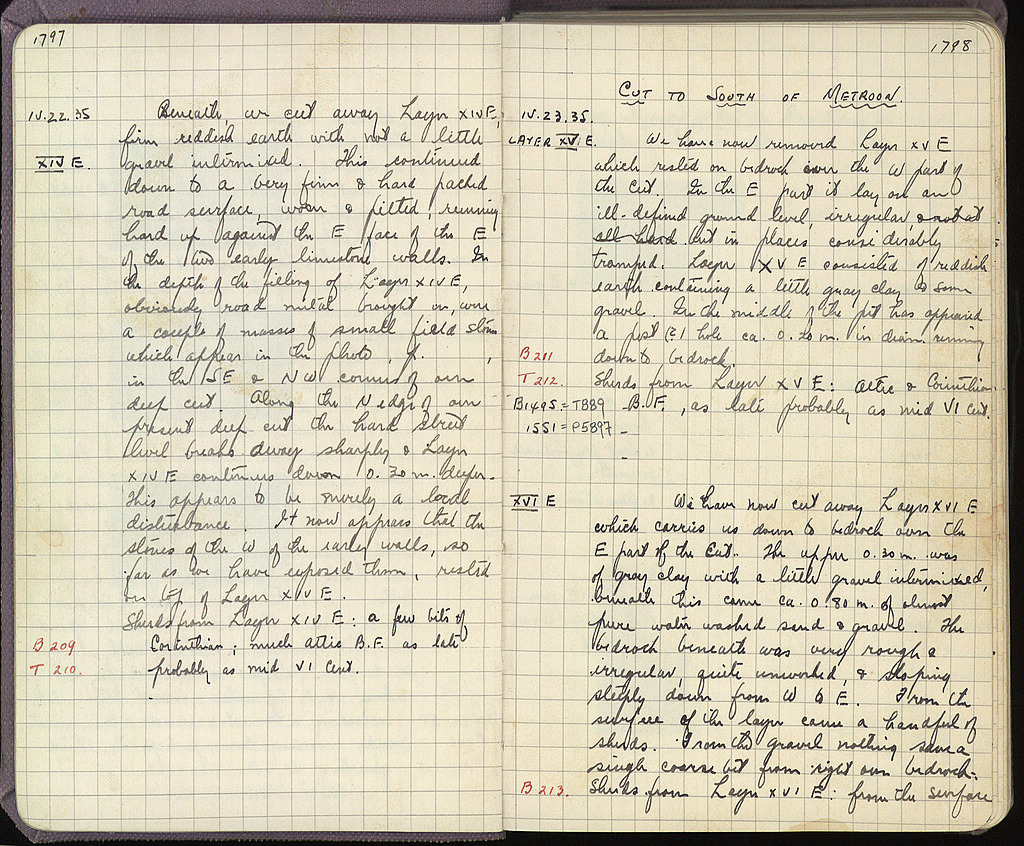 1797
IV.22.35 Beneath, we cut away Layer XIV E,
firm reddish earth with not a little
XIV E. gravel intermixed. This continued
down to a very firm & hard packed
road surface, worn & pitted, running
hard up against the E face of the E
of the two early limestone walls. In
the depth of the filling of Layer XIV E,
obviously road metal brought in, were
a couple of masses of small field stones
which appear in the photo, of. ,
in the SE & NW corners of our
deep cut. Along the N edge of our
present deep cut the hard street
level breaks away sharply & Layer
XIV E continues down 0.30 m. deeper.
This appears to be merely a local
disturbance. It now appears that the
stones of the W of the early walls, so
far as we have exposed them, rested
on top of Layer XIV E.
Sherds from Layer XIV E: a few bits of
B 209 Corinthian; much Attic B.F. as late
T 210. probably as mid VI Cent.
1798
CUT TO SOUTH OF METROON.
IV.23.35.
LAYER XV E. We have now removed Layer XV E
which rested on bedrock over the W part of
the Cut. In the E part it lay on an
ill-defined ground level, irregular & not at
all hard but in places considerably
tramped. Layer XV E consisted of reddish
earth containing a little gray clay & some
gravel. In the middle of the pit has appeared
a post hole ca. 0.20 m. in diam. running
B 211 down to bedrock.
T 212. Sherds from Layer XV E: Attic & Corinthian
B1495 = T889 B.F., as late probably as mid VI Cent.
1551 = P5897 –
XVI E We have now cut away Layer XVI E
which carries us down to bedrock over the
E part of the Cut. The upper 0.30 m. was
of gray clay with a little gravel intermixed,
beneath this came ca. 0.80 m. of almost
pure water washed sand & gravel. The
bedrock beneath was very rough &
irregular, quite unworked, & sloping
steeply down from W to E. From the
surface of the layer came a handful of
sherds. From the gravel nothing save a
single coarse bit from right over bedrock.
B 213. Sherds from Layer XVI E: from the surface